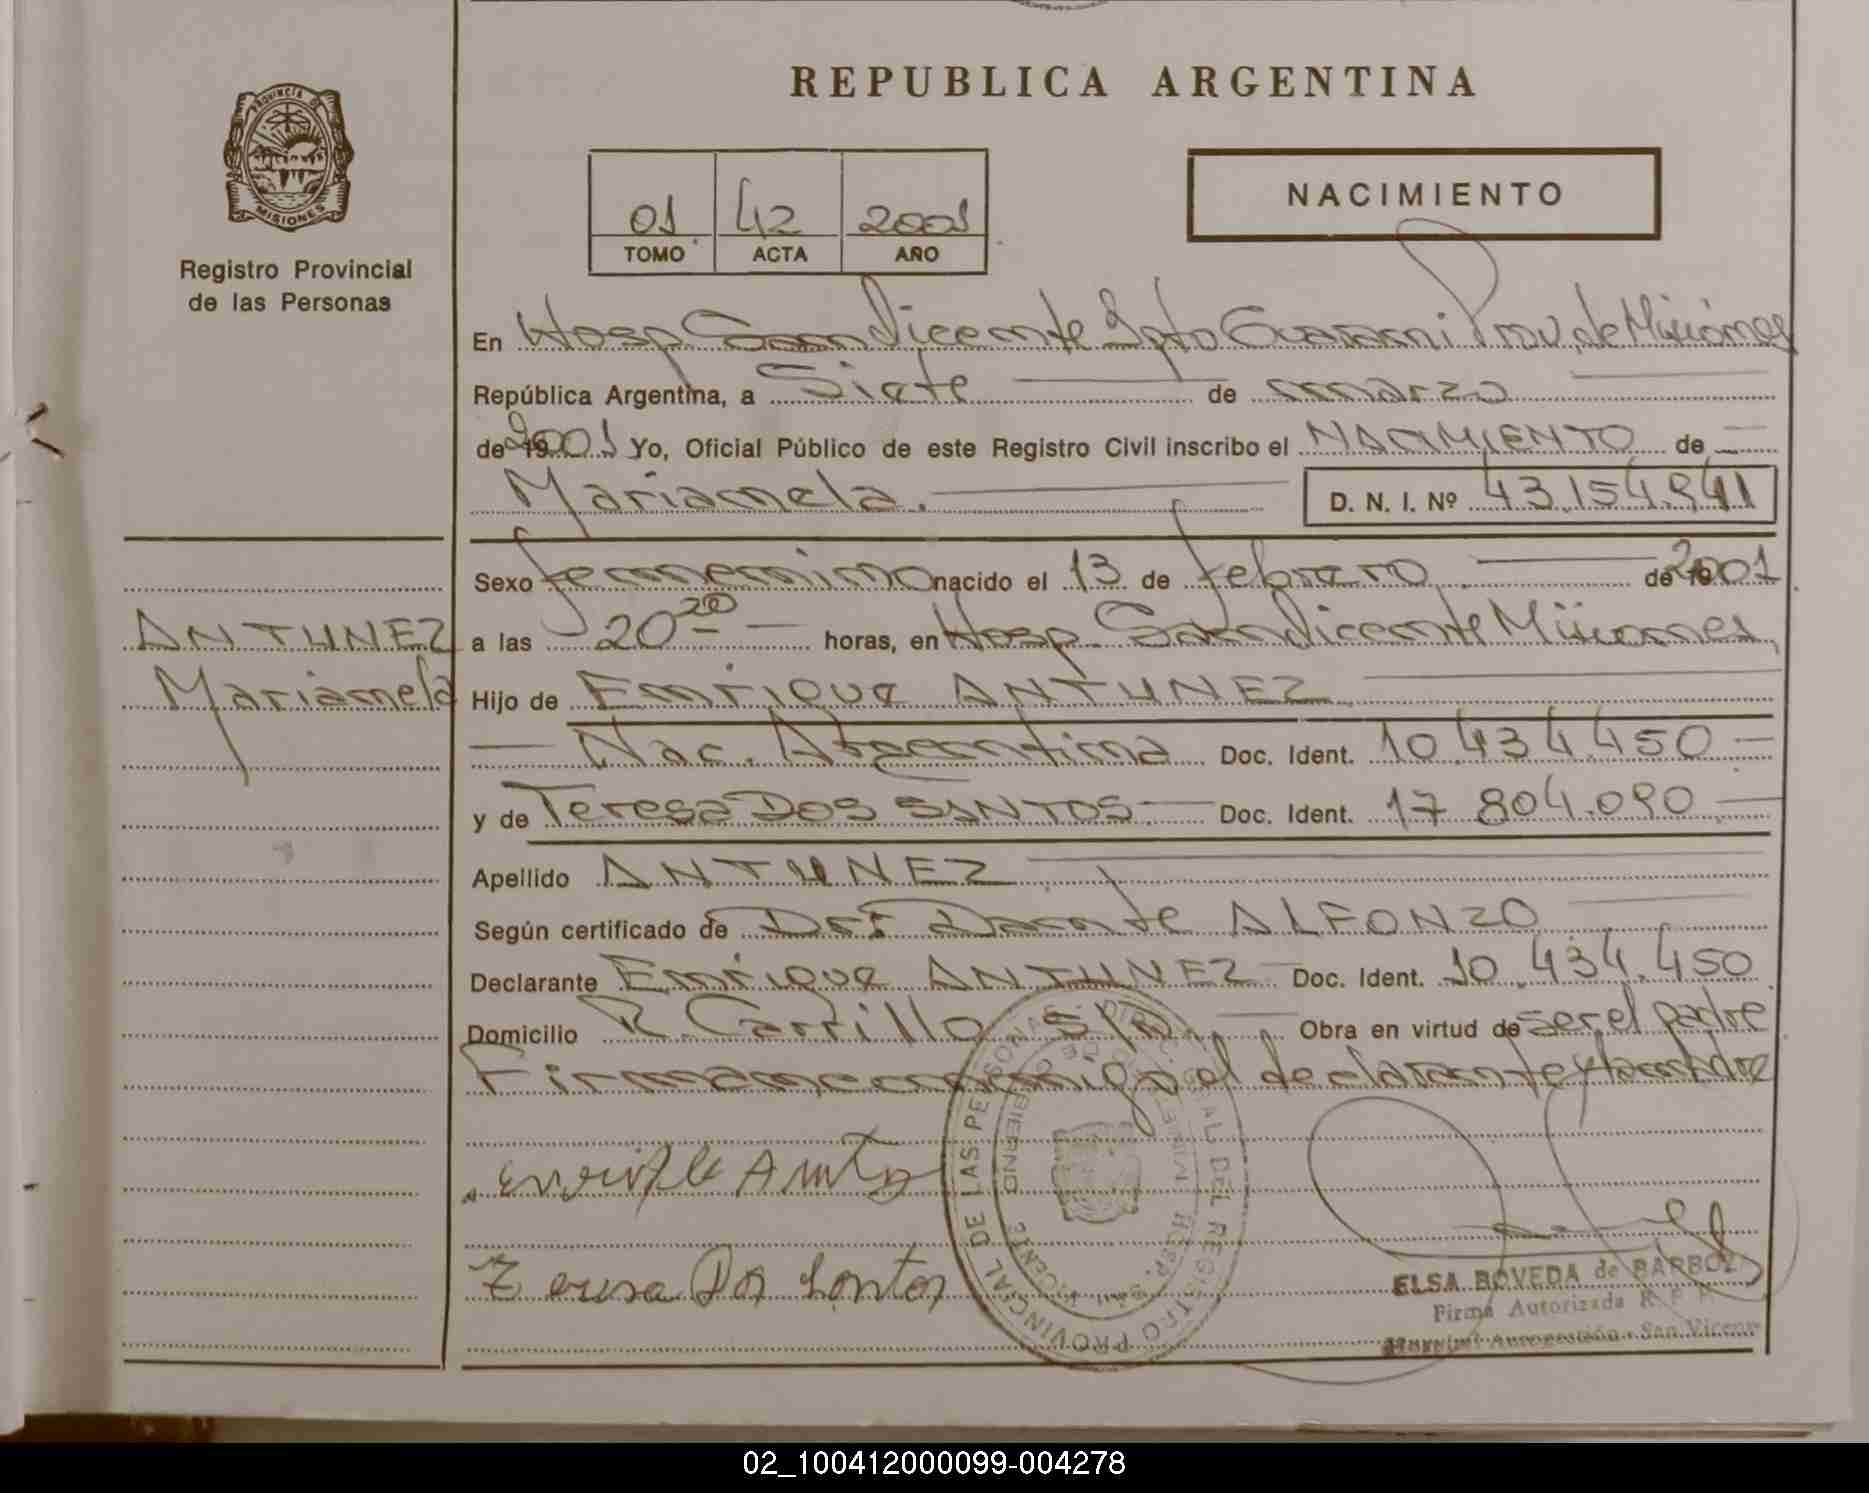 PROVINCIA DE
MISIONES
Registro Provincial
de las Personas
ANTUNEZ
Mariamela
REPUBLICA ARGENTINA
01 42 2001
TOMO ACTA AÑO
NACIMIENTO
En Hosp San Vicente Dpto Guarani Prov. de Misiones
República Argentina, a Siete de marzo
de 2001 Yo, Oficial Público de este Registro Civil inscribo el NACIMIENTO de
Mariamela. D. N. I. Nº 43.154.941
Sexo femenino nacido el 13 de febrero de 2001
a las 20 20 horas, en Hosp. San Vicente Misiones
Hijo de Enrique ANTUNEZ
Nac. Argentina Doc. Ident. 10.434.450
y de Teresa DOS SANTOS Doc. Ident. 17 804.090
Apellido ANTUNEZ
Según certificado de Dr: Dante ALFONZO
Declarante Enrique ANTUNEZ Doc. Ident. 10.434.450
Domicilio R. Carrillo S/N Obra en virtud de ser el padre
Firman conmigo el declarante y la madre
Teresa Dos Santos
PROVINCIAL DE LAS PERSONAS
DEL REGISTRO
ELSA BOVEDA de BARBOZ
Firma Autorizada R. P. P.
Hospital Autogestión - San Vicente
02_100412000099-004278